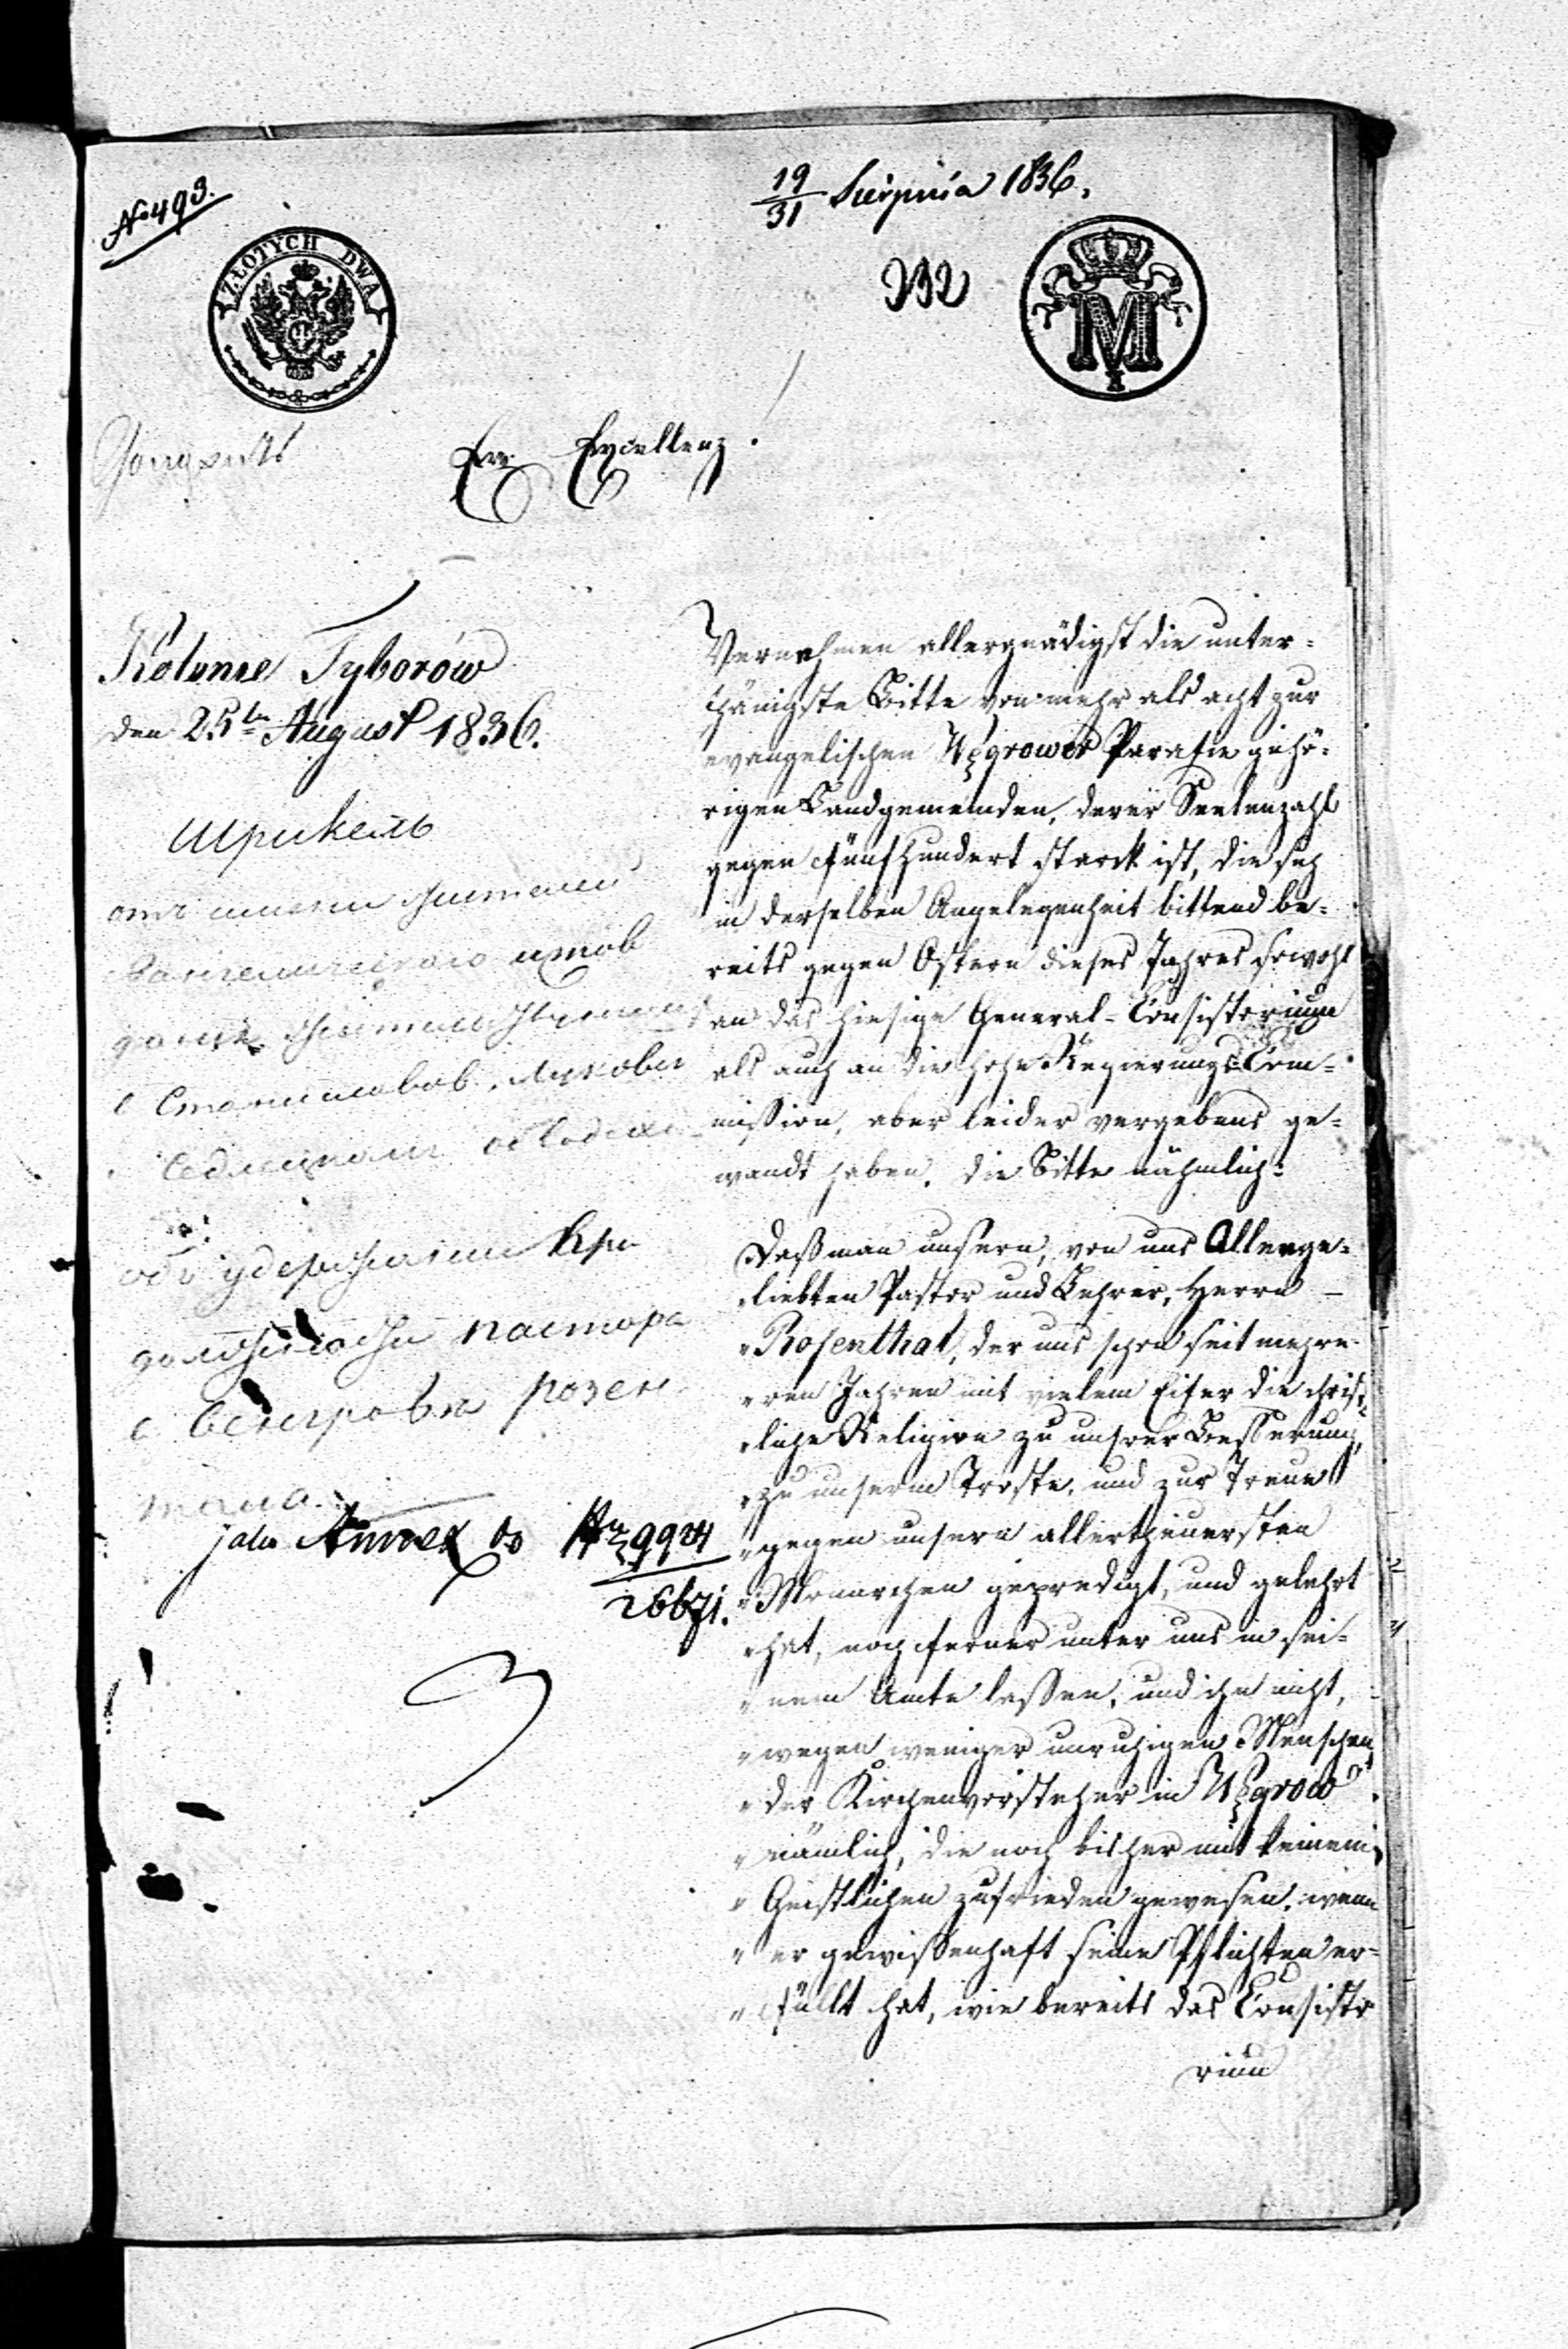 No 493.
19/31 Sierpnia 1836.
ZŁOTYCH DWA
232
M
I
Ew. Excellenz!
Kolonie Tyborów
den 25ten August 1836.
Шрикель
отъ имени
с Станиславов.
объ удержании при
должности пастора
с Венгрова Розен
тала.
jako Annex do Nr 9924
26671.
Vernehmen allergnädigst die unter=
thänigste Bitte von mehr als acht zur
evangelischen Węgrower Parafie gehö=
rigen Landgemeinden, derer Seelenzahl
gegen fünfhundert starck ist, die sich
in derselben Angelegenheit bittend be=
reits gegen Ostern dieses Jahres sowohl
an das hiesige General=Consistorium
als auch an die hohe Regierungs=Com=
mission, aber leider vergebens ge=
wandt haben. Die Bitte nähmlich:
Daß man unsern, von uns Allenge=
„liebten Pastor und Lehrer, Herrn –
„Rosenthal, der uns schon seit mehre-
„ren Jahren mit vielem Eifer die christ=
„liche Religion zu unsrer Besserung,
„zu unserm Troste, und zur Treue
„gegen unsern allertheuersten
„Monarchen gepredigt, und gelehrt
„hat, noch ferner unter uns in sei=
„nem Amte lassen, und ihn nicht,
„wegen weniger unruhigen Menschen,
„der Kirchenvorsteher in Węgrow
„nämlich, die noch bisher mit keinem
„Geistlichen zufrieden gewesen, wenn
„er gewissenhaft seine Pflichten er=
„füllt hat, wie bereits das Consisto
rium